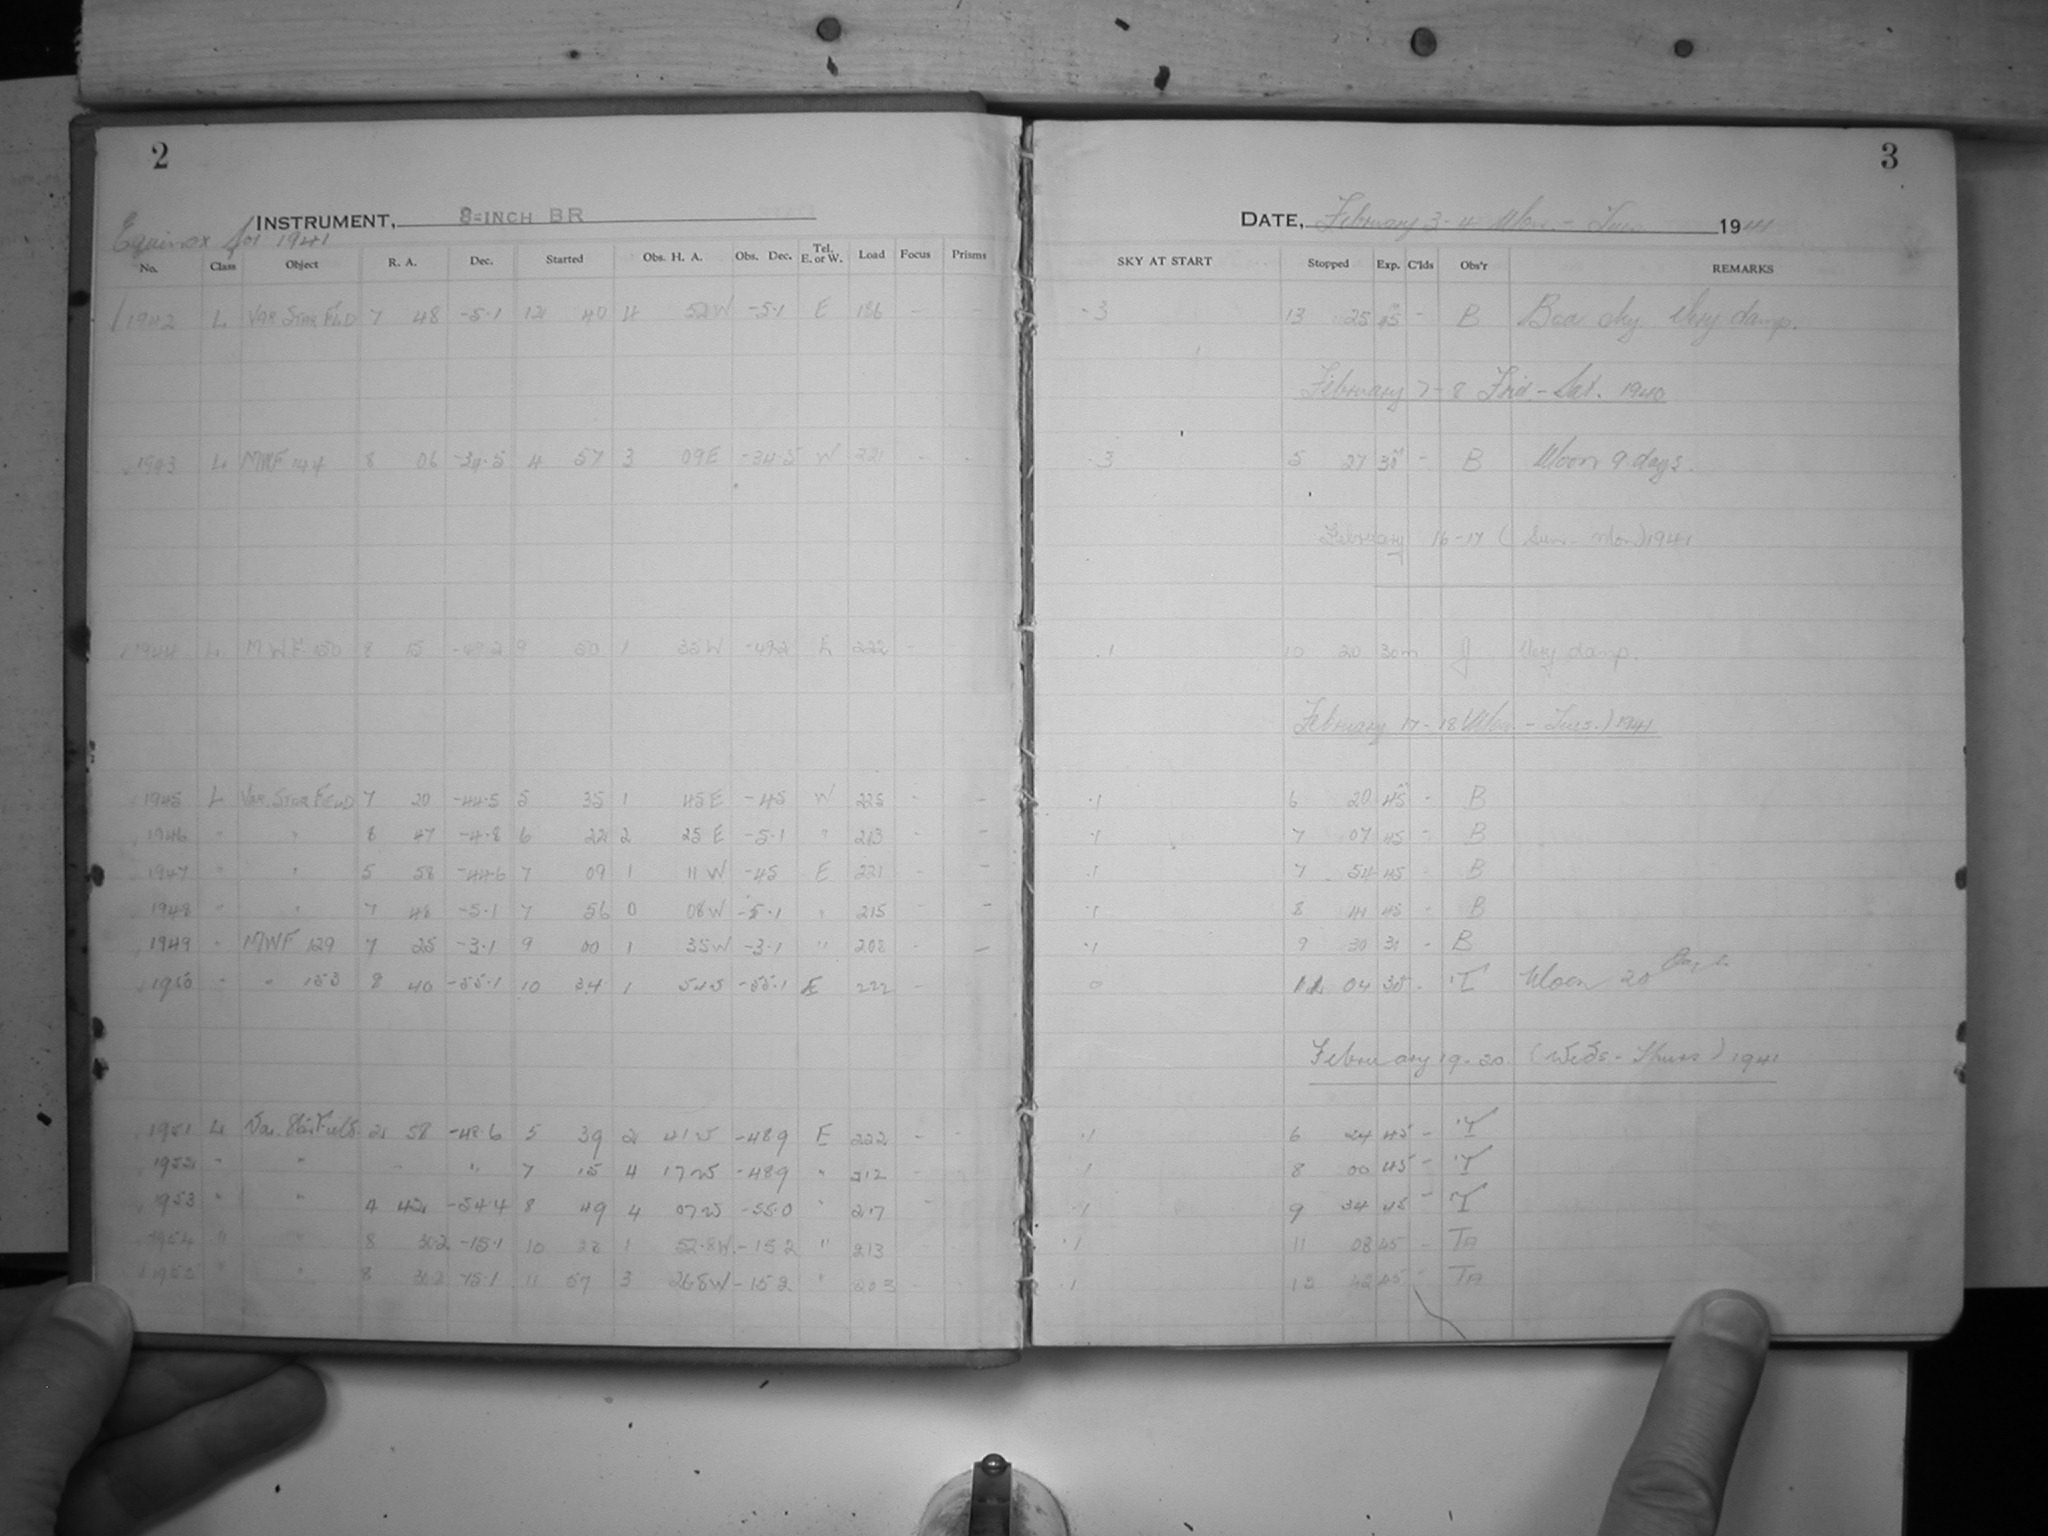 2
INSTRUMENT, 8-INCH BR
Equinox for 1941
No. Class Object R. A. Dec. Started Obs. H. A. Obs. Dec. Tel. E. or W. Load Focus Prisms
1942 L VAR STAR FLD 7 48 -5.1 12 40 4 52W -5.1 E 186 - -
1943 L MWF 144 8 06 -34.5 4 57 3 09E -34.5 W 221 - -
1944 L MWF 150 8 15 -49.2 9 50 1 35W -49.2 E 222 -
1945 L VAR. STAR FIELD 7 20 -44.5 5 35 1 45E -45 W 225 - -
1946 " " 8 47 -4.8 6 22 2 25E -5.1 " 213 - -
1947 " " 5 58 -44.6 7 09 1 11W -45 E 221 - -
1948 " " 7 48 -5.1 7 56 0 08W -5.1 " 215 - -
1949 " MWF 129 7 25 -3.1 9 00 1 35W -3.1 " 208 - -
1950 " " 153 8 40 -55.1 10 34 1 -55.1 E 222 -
1951 L Var. Star Field 2 58 -48.6 5 39 2 41W -48.9 E 222 - -
1952 " " " " 7 15 4 17W -48.9 " 212
1953 " " 4 42 -54.4 8 49 4 07W -55.0 " 217 -
1954 " " 8 30.2 -15.1 10 1 52.8W -15.2 " 213
1955 " " 8 30.2 -15.1 11 57 3 26.8W -15.2 " 203 -
3
DATE, February 3-4 Mon. - Tues. 1941
SKY AT START Stopped Exp. C'lds Obs'r REMARKS
.3 13 25 45 - B Bad sky. Very damp.
February 7-8 Frid. - Sat. 1940
.3 5 27 30 - B Moon 9 days.
February 16-17 (Sun - Mon) 1941
.1 10 20 30m Very damp.
February 17-18 (Mon. - Tues.) 1941
.1 6 20 45 - B
.1 7 07 45 - B
.1 7 54 45 - B
.1 8 41 45 - B
.1 9 30 30 - B
0 11 04 30 - T Moon 20 Days.
February 19-20 (Weds - Thurs) 1941
.1 6 24 45 - T
.1 8 00 45 - T
.1 9 34 45 - T
.1 11 08 45 - TA
.1 12 42 45 - TA